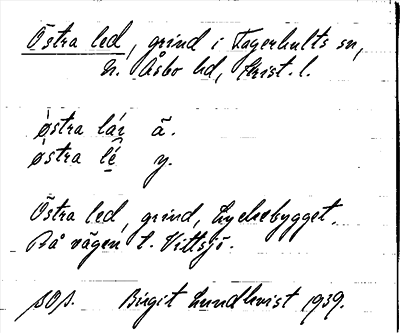 Östra led, grind i Fagerhults sn,
N. Åsbo hd, Krist. l.
östra lái ä.
östra lé y.
Östra led, grind, Lyckebygget.
På vägen t. Vittsjö.
Birgit Lundkvist 1939.